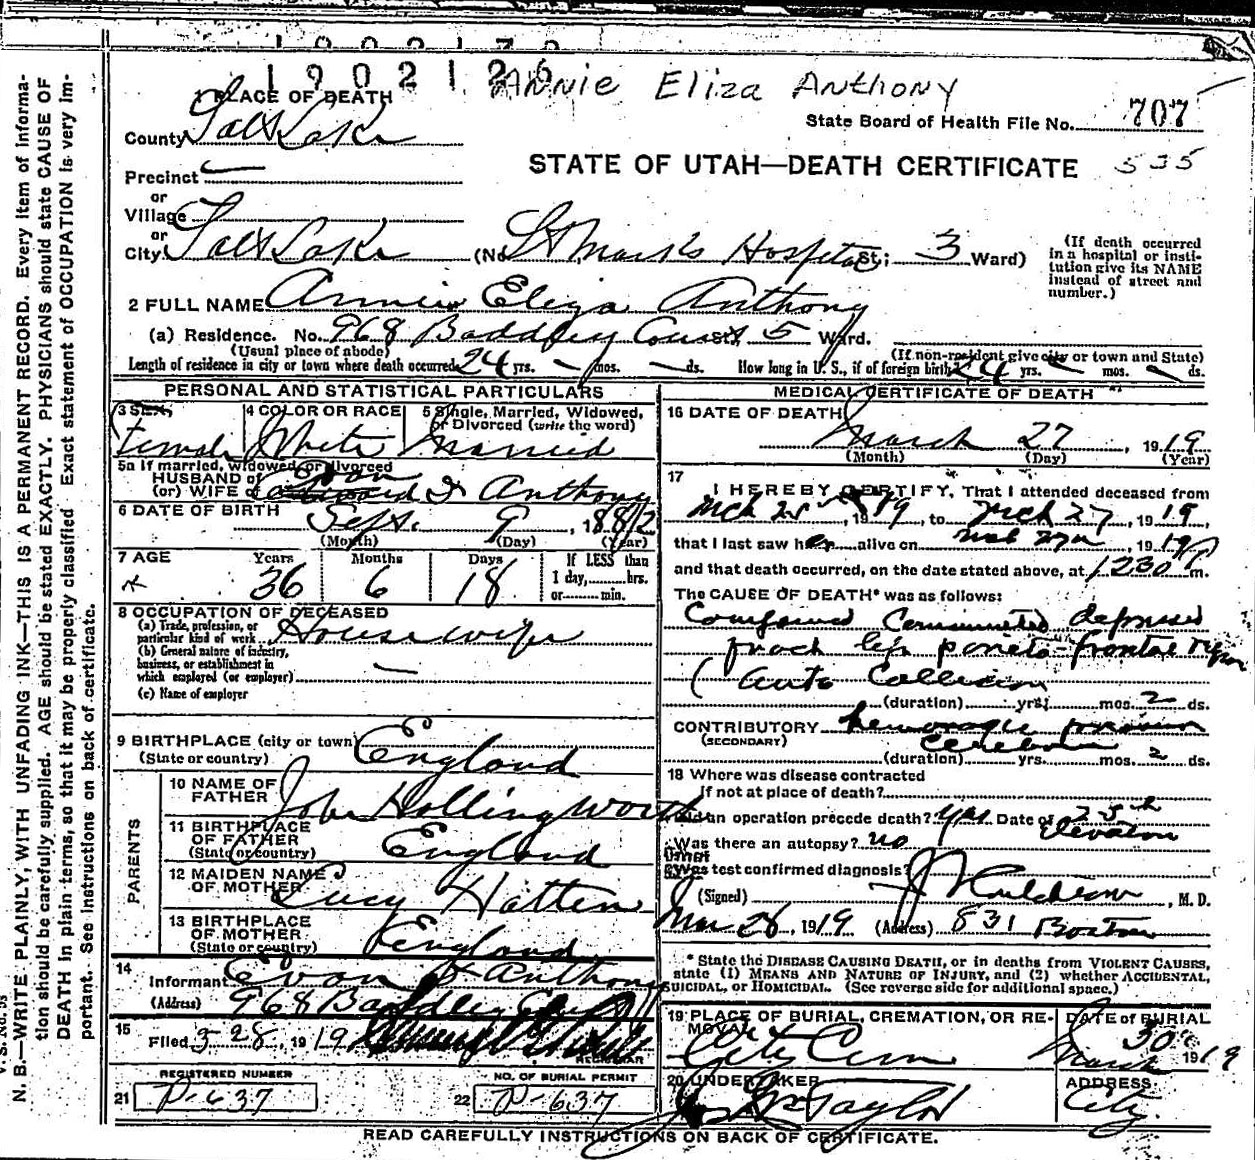 1902126
Annie Eliza Anthony
1 PLACE OF DEATH
State Board of Health File No. 707
County Salt Lake
STATE OF UTAH—DEATH CERTIFICATE 535
Precinct
or
Village
or
City Salt Lake (No. St Mark's Hospital St; 3 Ward)
(If death occurred in a hospital or insti-
tution give its NAME
instead of street and
number.)
2 FULL NAME Annie Eliza Anthony
(a) Residence. No. 968 Baddley Court St. 5 Ward.
(Usual place of abode) (If non-resident give city or town and State)
Length of residence in city or town where death occurred 24 yrs. — mos. — ds. How long in U. S., if of foreign birth? 24 yrs. — mos. — ds.
PERSONAL AND STATISTICAL PARTICULARS
3 SEX 4 COLOR OR RACE 5 Single, Married, Widowed,
or Divorced (write the word)
Female White Married
5a If married, widowed, or divorced
HUSBAND of
(or) WIFE of Evon J Anthony
6 DATE OF BIRTH Sept. 9, 1882
(Month) (Day) (Year)
7 AGE Years Months Days If LESS than
1 day,.....hrs.
or.....min.
36 6 18
8 OCCUPATION OF DECEASED
(a) Trade, profession, or
particular kind of work Housewife
(b) General nature of industry,
business, or establishment in
which employed (or employer) —
(c) Name of employer
9 BIRTHPLACE (city or town) England
(State or country)
PARENTS
10 NAME OF
FATHER John Hollingworth
11 BIRTHPLACE
OF FATHER England
(State or country)
12 MAIDEN NAME
OF MOTHER Lucy Hatten
13 BIRTHPLACE
OF MOTHER England
(State or country)
14
Informant Evon J Anthony
(Address) 968 Baddley Court
15
Filed 3 28, 1919
REGISTRAR
REGISTERED NUMBER NO. OF BURIAL PERMIT
21 P-637 22 P-637
MEDICAL CERTIFICATE OF DEATH
16 DATE OF DEATH
March 27 1919
(Month) (Day) (Year)
17
I HEREBY CERTIFY, That I attended deceased from
Mch 25, 1919, to Mch 27, 1919,
that I last saw her alive on 1919
and that death occurred, on the date stated above, at 1230 P m.
The CAUSE OF DEATH* was as follows:
Compound Comminuted depressed
parieto-frontal region
(Auto Collision
(duration) yrs. mos. 2 ds.
CONTRIBUTORY hemorrhage
(SECONDARY) cerebrum
(duration) yrs. mos. 2 ds.
18 Where was disease contracted
if not at place of death?
Did an operation precede death? Yes Date of 25th
Elevation
Was there an autopsy? no
What test confirmed diagnosis?
(Signed) , M. D.
Mar 28, 1919 (Address) 831 Boston
* State the DISEASE CAUSING DEATH, or in deaths from VIOLENT CAUSES,
state (1) MEANS AND NATURE OF INJURY, and (2) whether ACCIDENTAL,
SUICIDAL, or HOMICIDAL. (See reverse side for additional space.)
19 PLACE OF BURIAL, CREMATION, OR RE-
MOVAL DATE of BURIAL
City Cem March 30 1919
20 UNDERTAKER ADDRESS
Jos Wm Taylor City
READ CAREFULLY INSTRUCTIONS ON BACK OF CERTIFICATE.
N. B.—WRITE PLAINLY, WITH UNFADING INK—THIS IS A PERMANENT RECORD. Every item of informa-
tion should be carefully supplied. AGE should be stated EXACTLY. PHYSICIANS should state CAUSE OF
DEATH in plain terms, so that it may be properly classified. Exact statement of OCCUPATION is very im-
portant. See instructions on back of certificate.